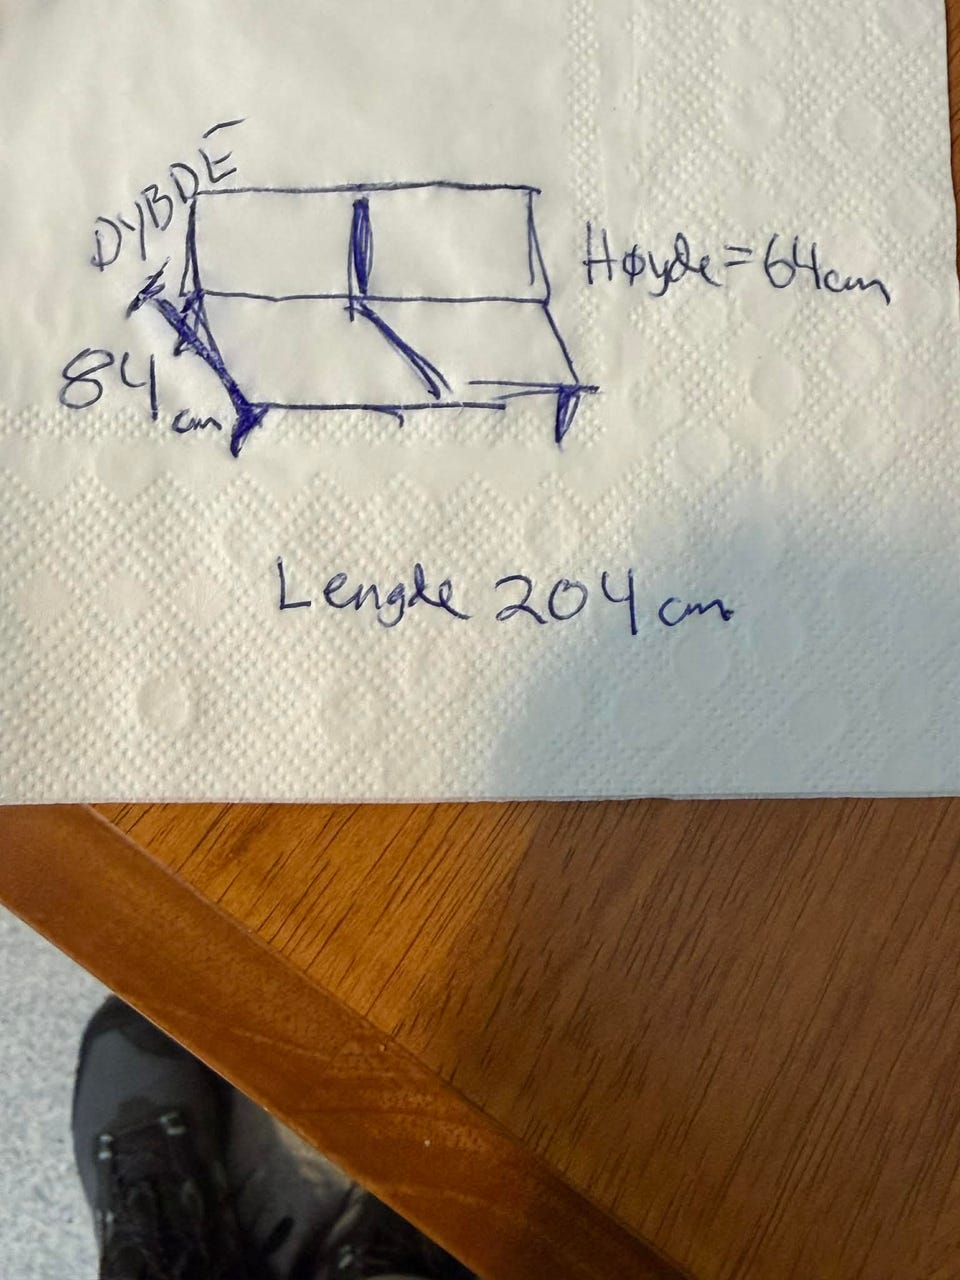 DYBDE
Høyde = 64cm
84 cm
Lengde 204 cm